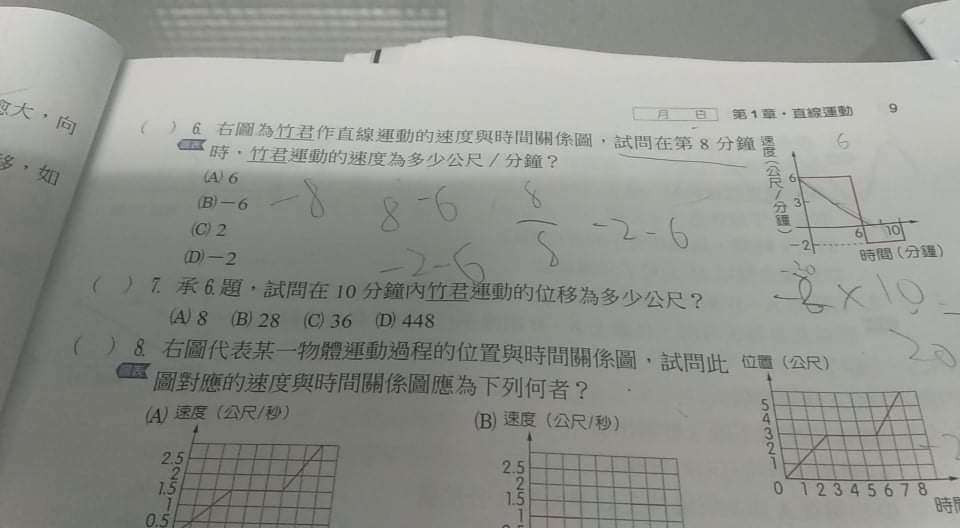 月 日 第1章・直線運動 9
愈大,向
移,如
( ) 6. 右圖為竹君作直線運動的速度與時間關係圖,試問在第 8 分鐘
時,竹君運動的速度為多少公尺/分鐘?
(A) 6
(B) −6
(C) 2
(D) −2
速度(公尺/分鐘)
6
3
−2
6 10
時間(分鐘)
6
−8
8 −6
8
8
−2−6
−2−6
−20
×10
20
( ) 7. 承 6. 題,試問在 10 分鐘內竹君運動的位移為多少公尺?
(A) 8 (B) 28 (C) 36 (D) 448
( ) 8. 右圖代表某一物體運動過程的位置與時間關係圖,試問此
圖對應的速度與時間關係圖應為下列何者?
位置(公尺)
5
4
3
2
1
0 1 2 3 4 5 6 7 8
時間
−2
(A) 速度(公尺/秒)
2.5
2
1.5
1
0.5
(B) 速度(公尺/秒)
2.5
2
1.5
1